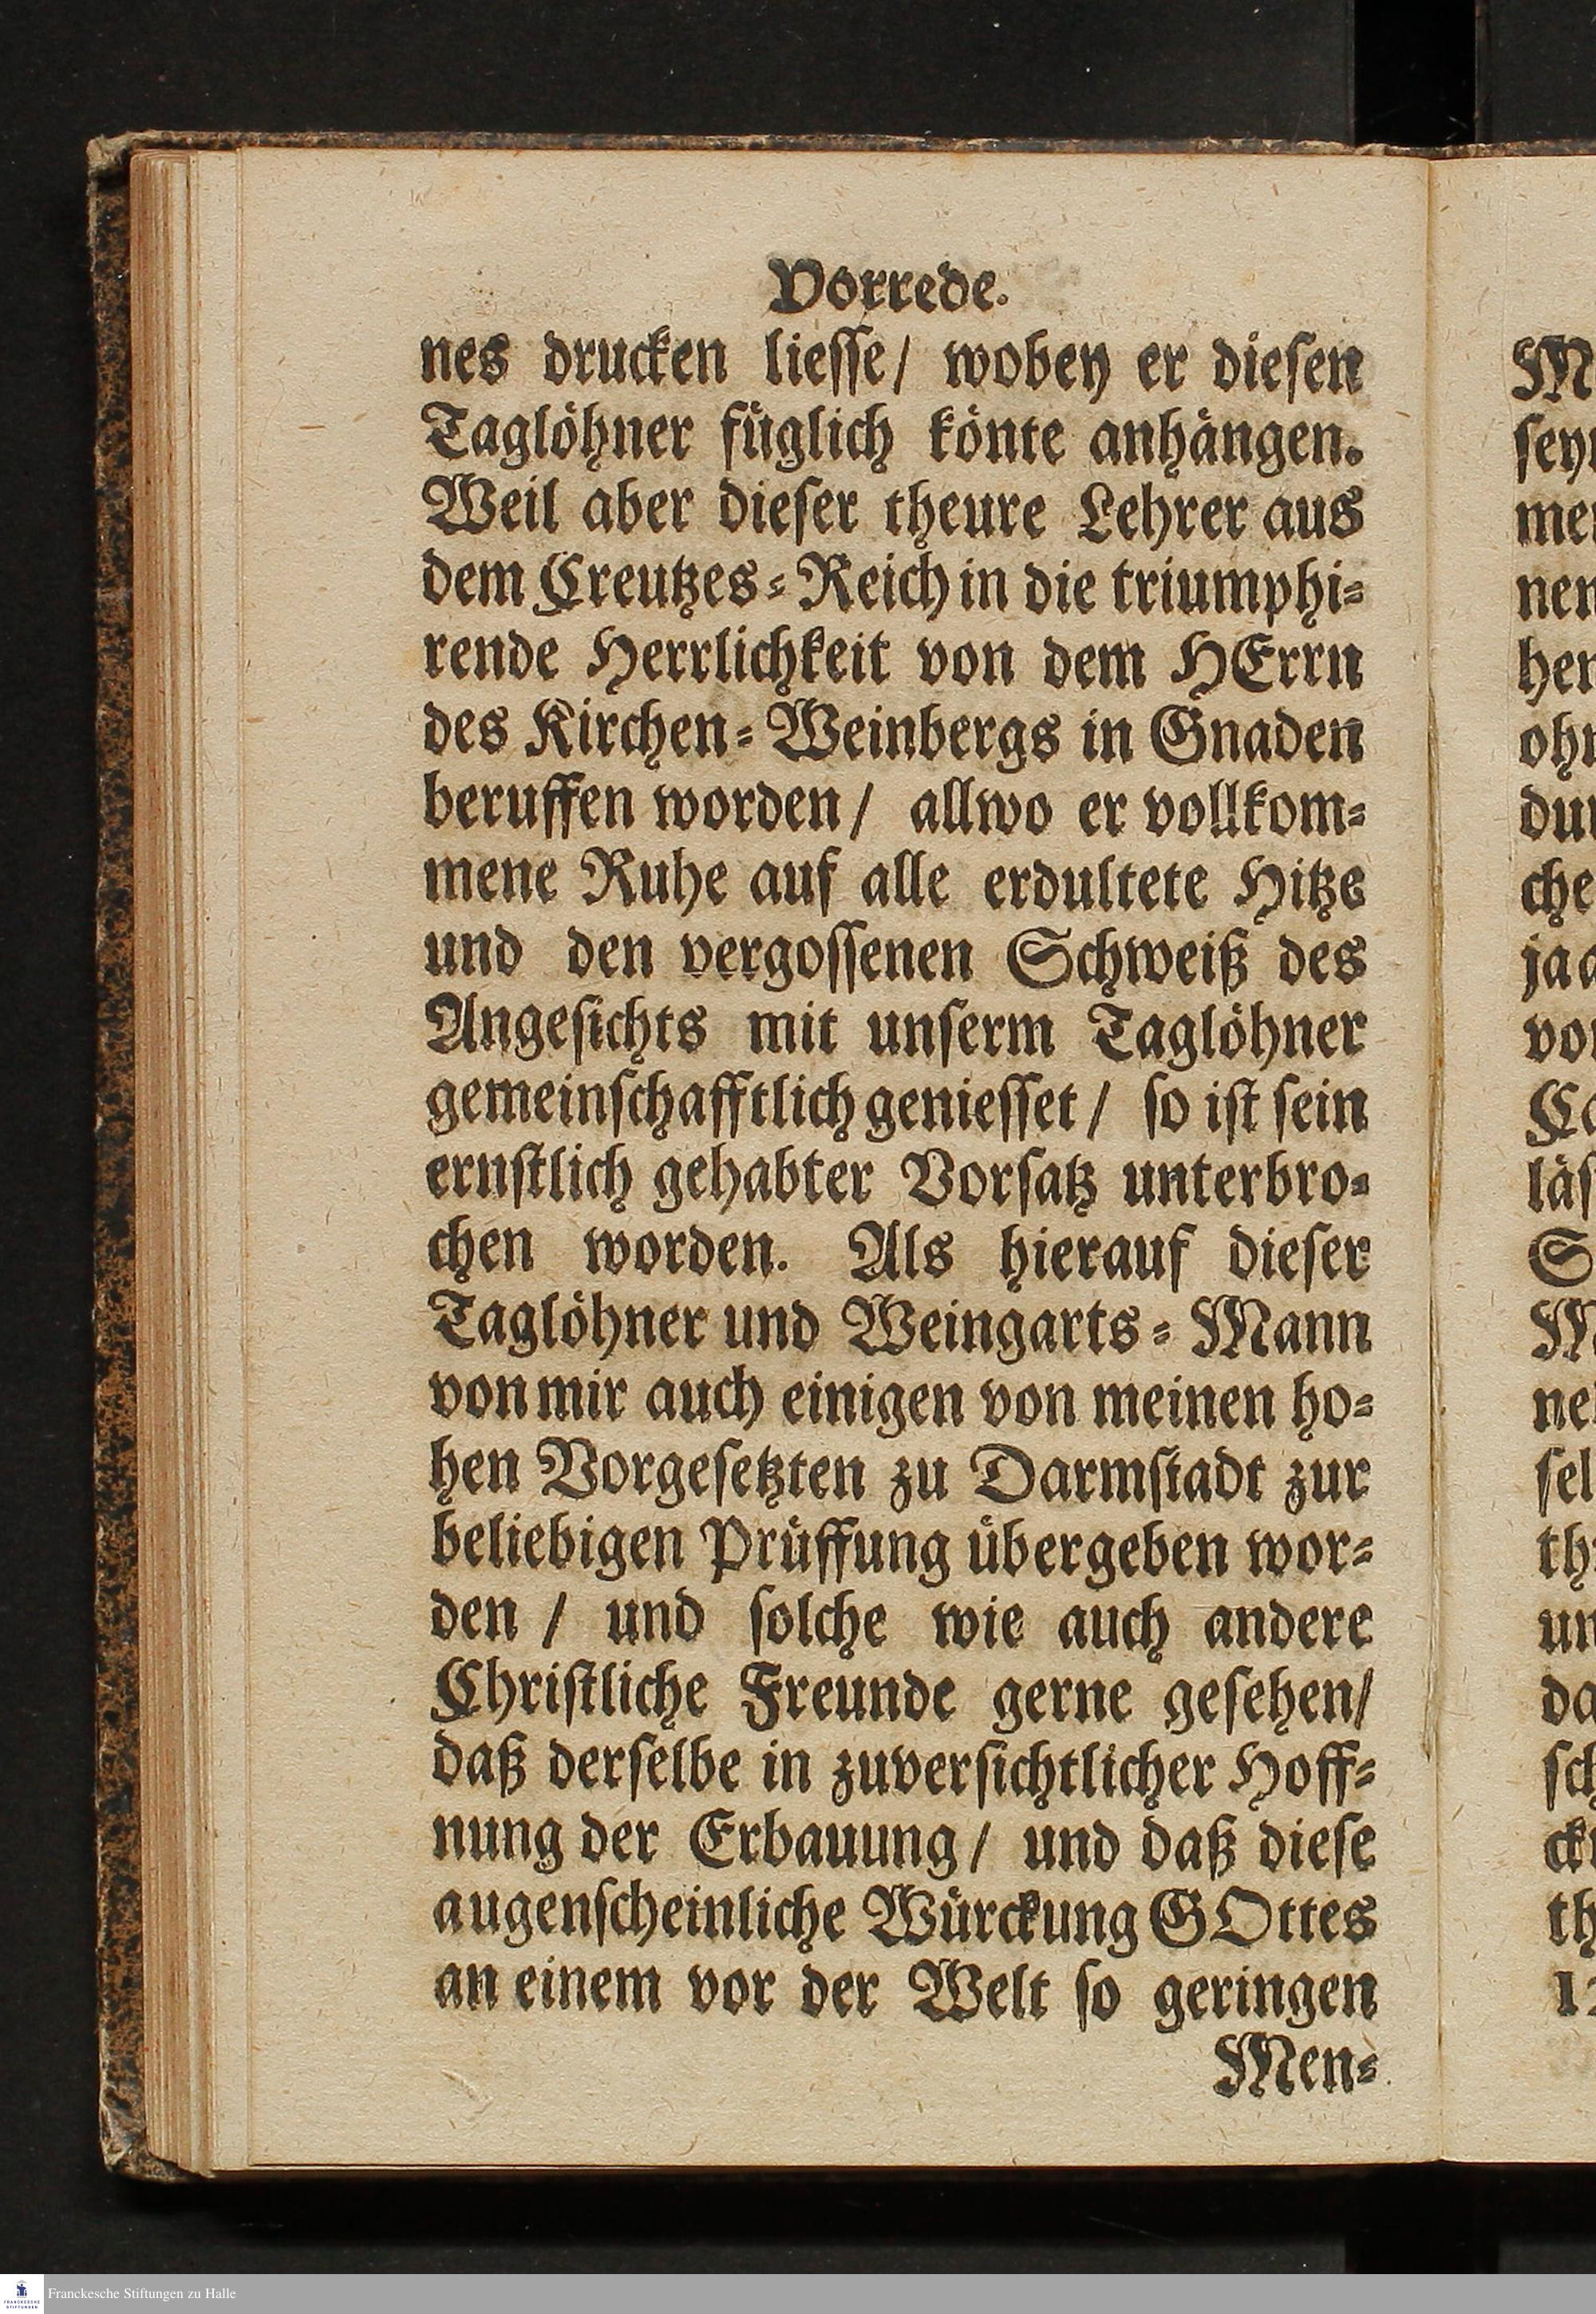 Vorrede.
nes drucken lieſſe/ wobey er dieſen
Taglöhner füglich könte anhängen.
Weil aber dieſer theure Lehrer aus
dem Creutzes⸗Reich in die triumphi⸗
rende Herrlichkeit von dem HErrn
des Kirchen⸗Weinbergs in Gnaden
beruffen worden/ allwo er vollkom⸗
mene Ruhe auf alle erdultete Hitze
und den vergoſſenen Schweiß des
Angeſichts mit unſerm Taglöhner
gemeinſchafftlich genieſſet/ ſo iſt ſein
ernſtlich gehabter Vorſatz unterbro⸗
chen worden. Als hierauf dieſer
Taglöhner und Weingarts⸗Mann
von mir auch einigen von meinen ho⸗
hen Vorgeſetzten zu Darmſtadt zur
beliebigen Prüffung übergeben wor⸗
den / und ſolche wie auch andere
Chriſtliche Freunde gerne geſehen/
daß derſelbe in zuverſichtlicher Hoff⸗
nung der Erbauung/ und daß dieſe
augenſcheinliche Würckung GOttes
an einem vor der Welt ſo geringen
Men⸗
Franckesche Stiftungen zu Halle